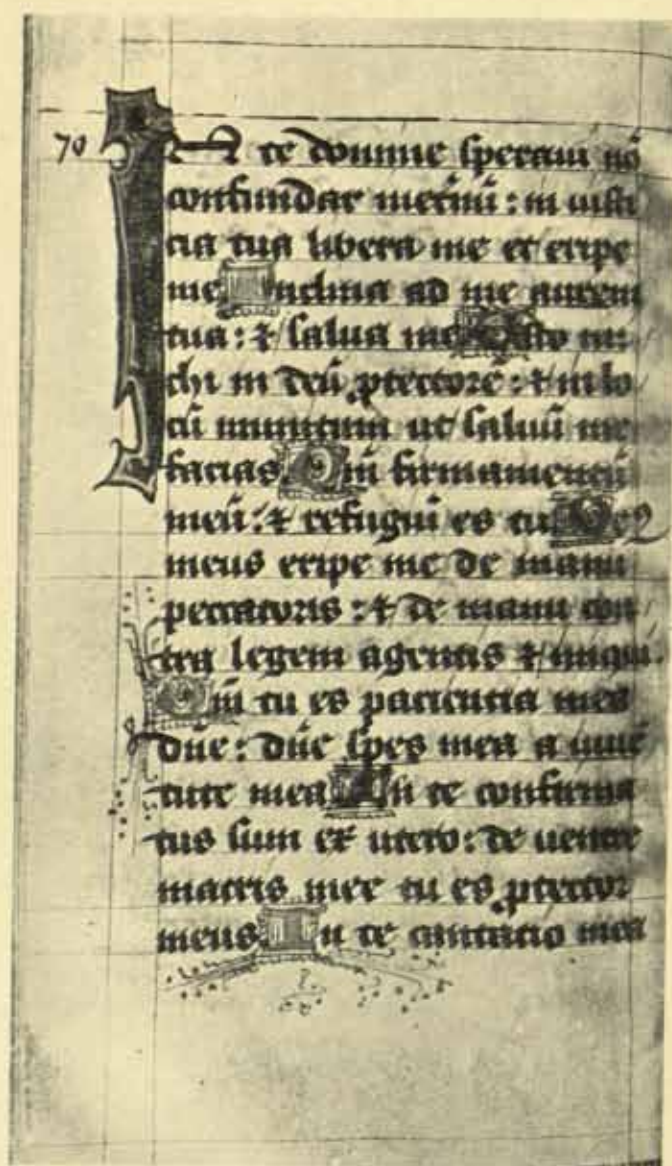 70 IN te domine speraui nō
confundar meternū : in iusti
cia tua libera me et eripe
me Inclina ad me aurem
tuā : ⁊ salua me Esto mi
chi in deū ꝓtectorē : ⁊ in lo
cū munitum ut saluū me
facias Qm̄ firmamentū
meū : ⁊ refugiū es tu De2
meus eripe me de manu
peccatoris : ⁊ de manu con
tra legem agentis ⁊ iniqui
Qm̄ tu es paciencia mea
dn̄e : dn̄e spes mea a iuuē
tute mea In te confirma
tus sum ex utero : de uentre
matris mee tu es ꝓtector
meus In te cantacio mea